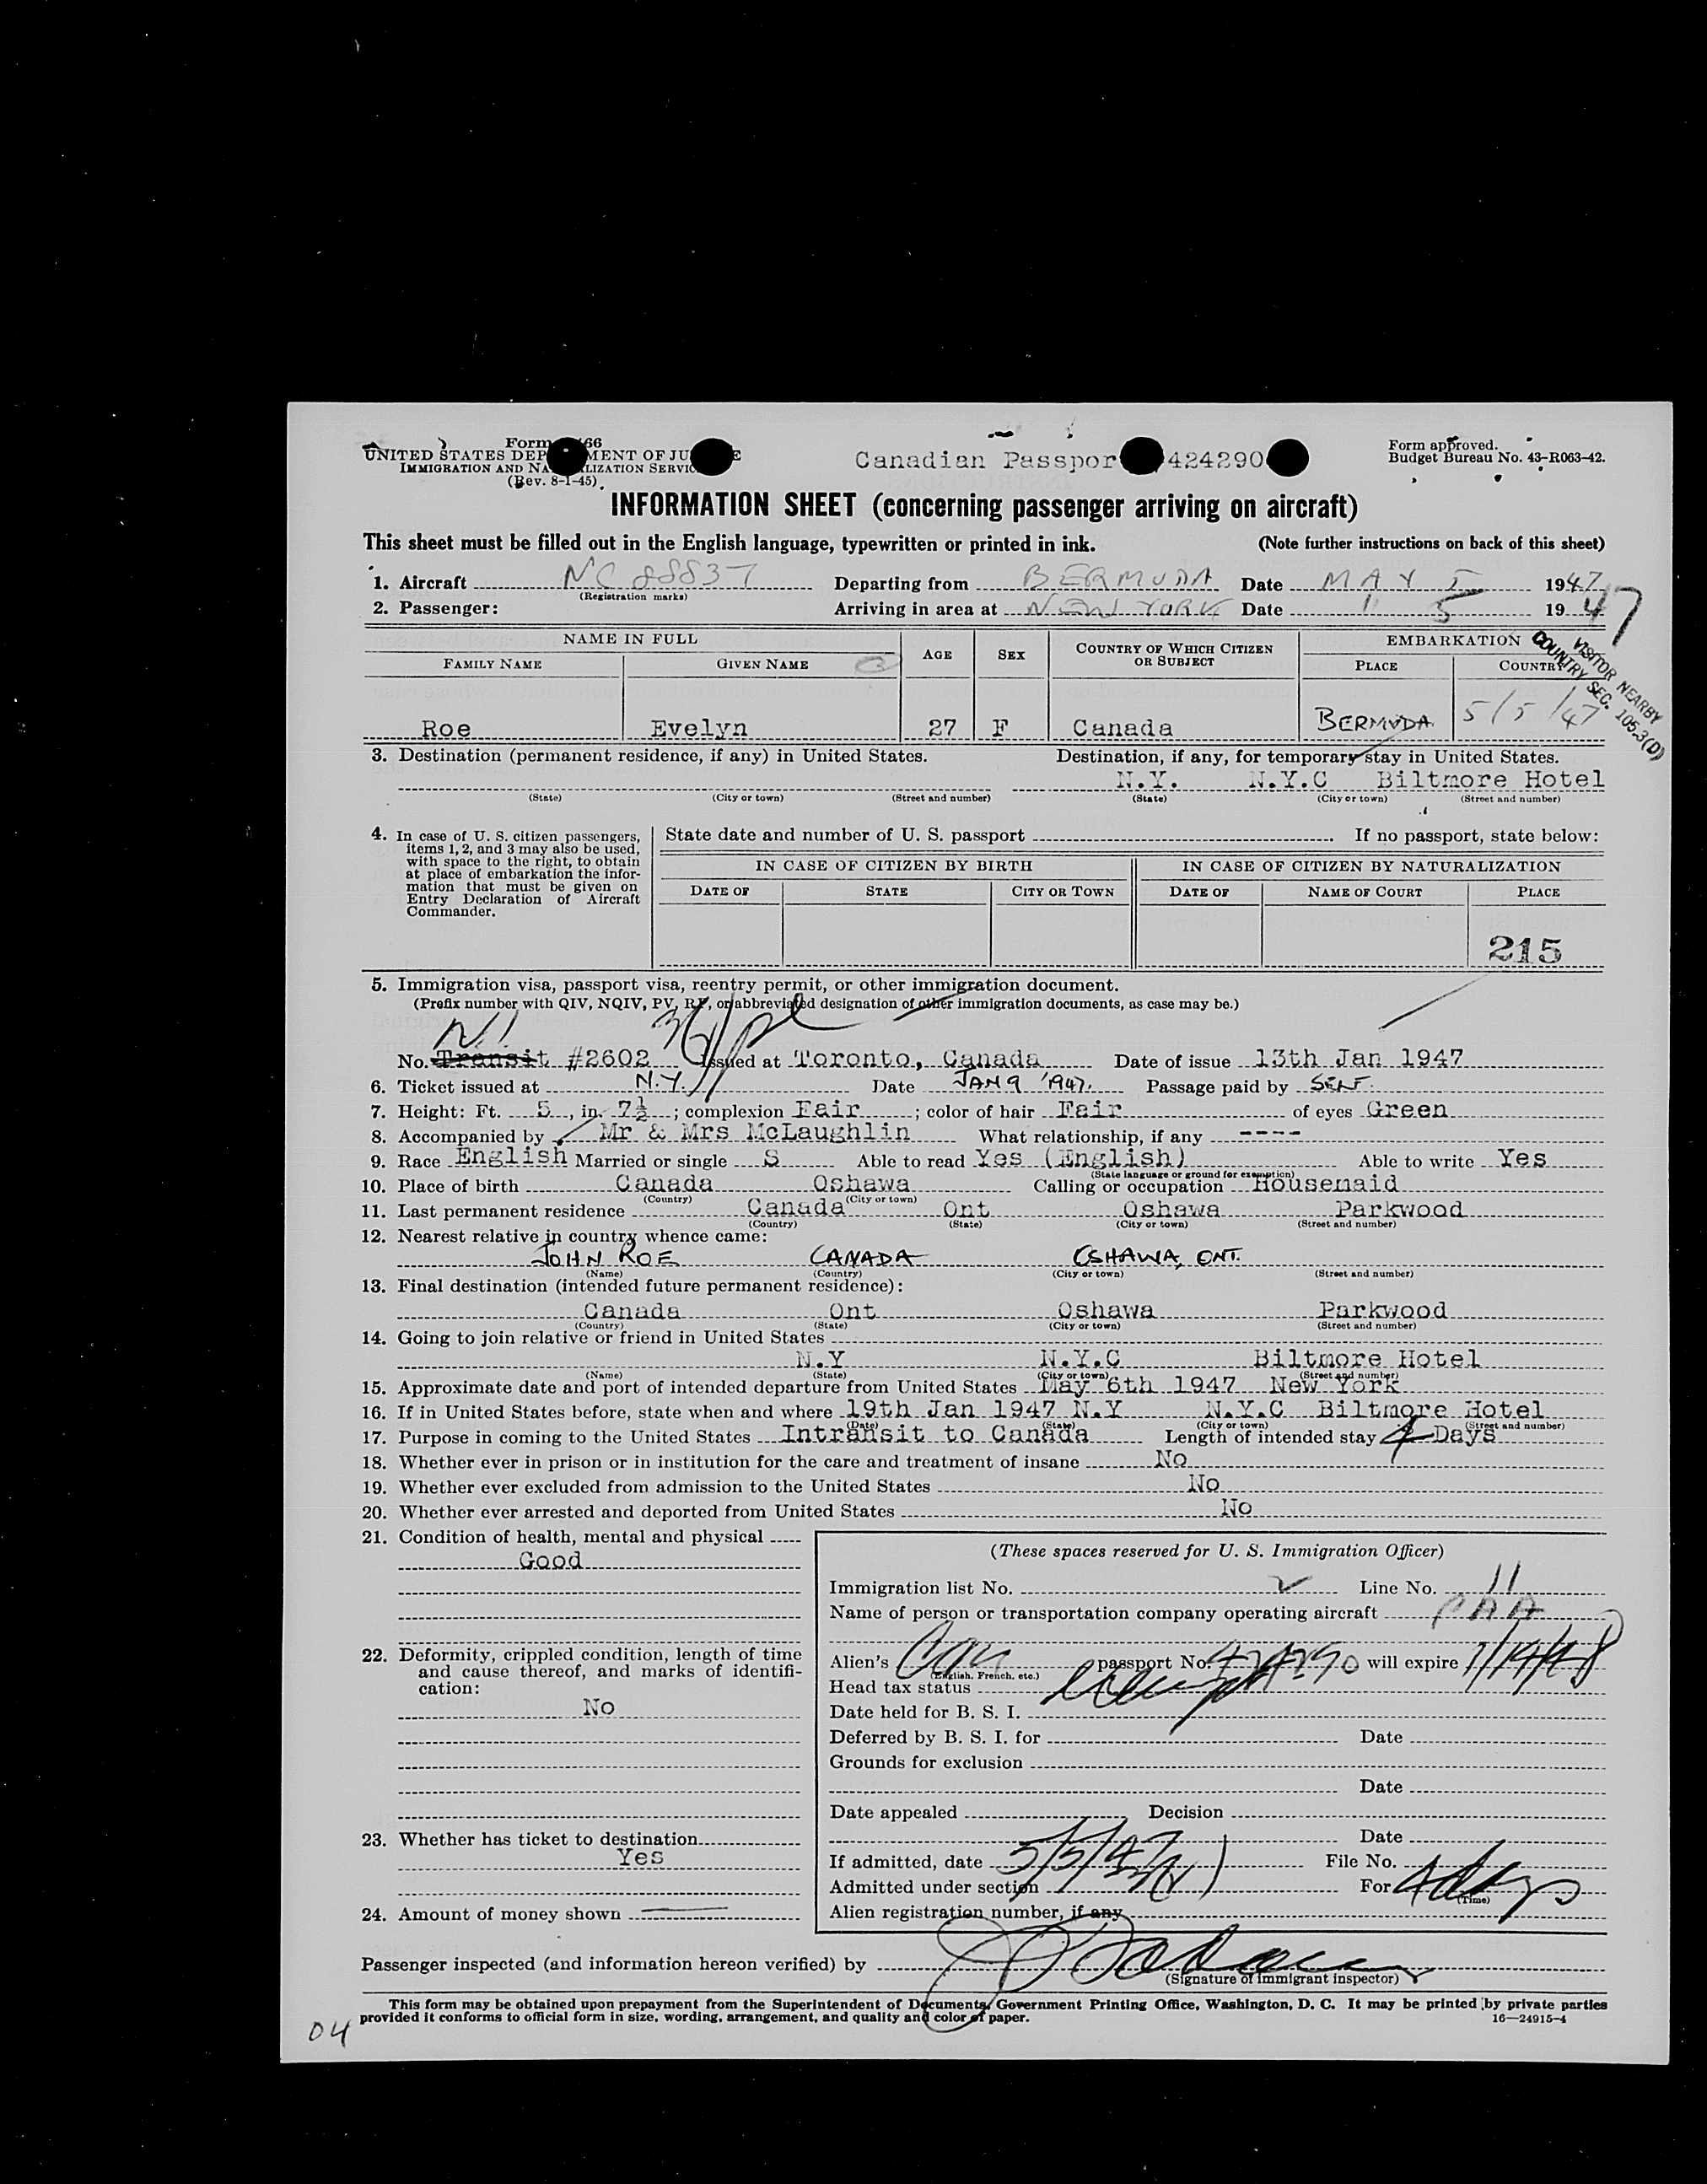 Form 66
UNITED STATES DEP MENT OF JU E
IMMIGRATION AND NA LIZATION SERVIC
(Rev. 8-1-45)
Canadian Passpor 424290
Form approved.
Budget Bureau No. 43-R063-42.
INFORMATION SHEET (concerning passenger arriving on aircraft)
This sheet must be filled out in the English language, typewritten or printed in ink. (Note further instructions on back of this sheet)
1. Aircraft NC 88837 Departing from BERMUDA Date MAY 5 1947
(Registration marks)
2. Passenger: Arriving in area at NEW YORK Date 11 5 19 47
NAME IN FULL AGE SEX COUNTRY OF WHICH CITIZEN OR SUBJECT EMBARKATION
FAMILY NAME GIVEN NAME PLACE COUNTRY
VISITOR NEARBY
COUNTRY SEC. 105.3(D)
Roe Evelyn 27 F Canada BERMUDA 5/5/47
3. Destination (permanent residence, if any) in United States. Destination, if any, for temporary stay in United States.
N.Y. N.Y.C Biltmore Hotel
(State) (City or town) (Street and number) (State) (City or town) (Street and number)
4. In case of U. S. citizen passengers, items 1, 2, and 3 may also be used, with space to the right, to obtain at place of embarkation the information that must be given on Entry Declaration of Aircraft Commander.
State date and number of U. S. passport If no passport, state below:
IN CASE OF CITIZEN BY BIRTH IN CASE OF CITIZEN BY NATURALIZATION
DATE OF STATE CITY OR TOWN DATE OF NAME OF COURT PLACE
215
5. Immigration visa, passport visa, reentry permit, or other immigration document.
(Prefix number with QIV, NQIV, PV, RP, or abbreviated designation of other immigration documents, as case may be.)
No. Transit #2602 Issued at Toronto, Canada Date of issue 13th Jan 1947
6. Ticket issued at N.Y. Date JAN 9 1947. Passage paid by SELF.
7. Height: Ft. 5, in. 7½; complexion Fair; color of hair Fair of eyes Green
8. Accompanied by Mr & Mrs McLaughlin What relationship, if any ----
9. Race English Married or single S Able to read Yes (English) Able to write Yes
(State language or ground for exemption)
10. Place of birth Canada Oshawa Calling or occupation Housemaid
(Country) (City or town)
11. Last permanent residence Canada Ont Oshawa Parkwood
(Country) (State) (City or town) (Street and number)
12. Nearest relative in country whence came:
JOHN ROE CANADA OSHAWA, ONT.
(Name) (Country) (City or town) (Street and number)
13. Final destination (intended future permanent residence):
Canada Ont Oshawa Parkwood
(Country) (State) (City or town) (Street and number)
14. Going to join relative or friend in United States
N.Y N.Y.C Biltmore Hotel
(Name) (State) (City or town) (Street and number)
15. Approximate date and port of intended departure from United States May 6th 1947 New York
16. If in United States before, state when and where 19th Jan 1947 N.Y N.Y.C Biltmore Hotel
(Date) (State) (City or town) (Street and number)
17. Purpose in coming to the United States Intransit to Canada Length of intended stay 4 Days
18. Whether ever in prison or in institution for the care and treatment of insane No
19. Whether ever excluded from admission to the United States No
20. Whether ever arrested and deported from United States No
21. Condition of health, mental and physical
Good
22. Deformity, crippled condition, length of time and cause thereof, and marks of identification:
No
23. Whether has ticket to destination
Yes
24. Amount of money shown
(These spaces reserved for U. S. Immigration Officer)
Immigration list No. Line No. 11
Name of person or transportation company operating aircraft PAA
Alien's Can passport No. 424290 will expire 1/14/48
(English, French, etc.)
Head tax status
Date held for B. S. I.
Deferred by B. S. I. for Date
Grounds for exclusion
Date
Date appealed Decision
Date
If admitted, date 5/5/47 File No.
Admitted under section For 4 days
(Time)
Alien registration number, if any
Passenger inspected (and information hereon verified) by
(Signature of immigrant inspector)
This form may be obtained upon prepayment from the Superintendent of Documents, Government Printing Office, Washington, D. C. It may be printed by private parties
provided it conforms to official form in size, wording, arrangement, and quality and color of paper. 16—24915-4
04